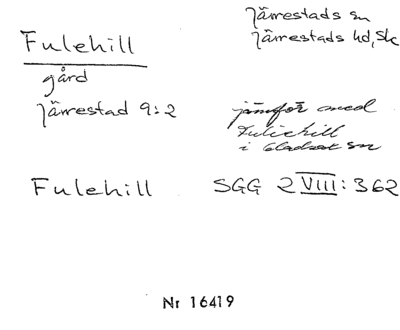 Fulehill
Järrestads sn
Järrestads hd, Sk
gård
Järrestad 9:2
jämför med
Fuliehill
i Gladsax sn
Fulehill SGG 2 VIII: 362
Nr 16419